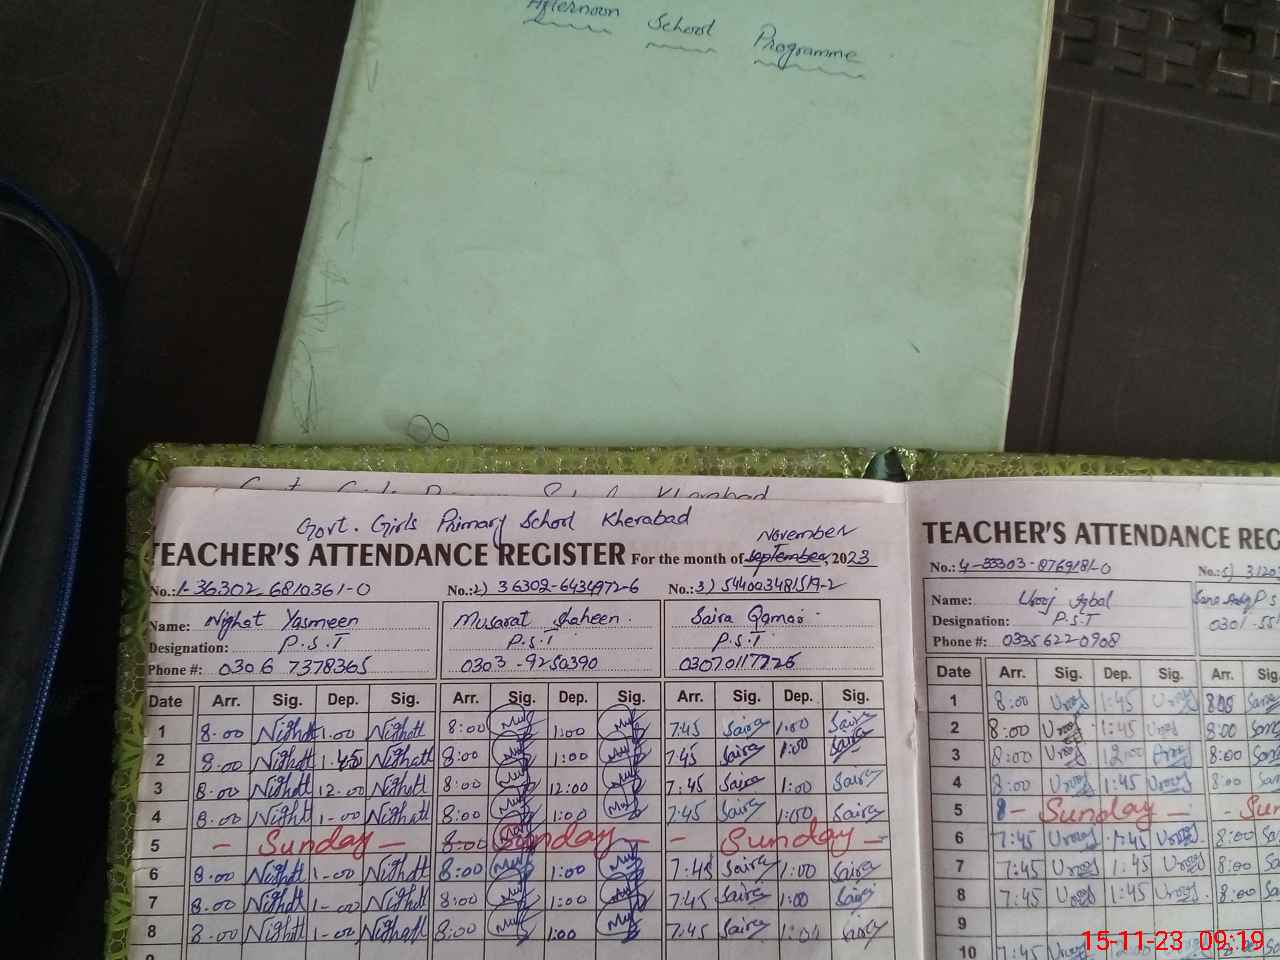 Afternoon School Programme
Govt. Girls Primary School Kherabad
TEACHER'S ATTENDANCE REGISTER For the month of September, 2023
November
No.: 1-36302 6810361-0 No.: 2) 36302-6434972-6 No.: 3) 544003481519-2
Name: Nighat Yasmeen Musarat Shaheen Saira Qamar
Designation: P.S.T P.S.T P.S.T
Phone #: 0306 7378365 0303-9250390 03070117726
Date Arr. Sig. Dep. Sig. Arr. Sig. Dep. Sig. Arr. Sig. Dep. Sig.
1 8.00 Nighatt 1.00 Nighatt 8:00 1:00 7:45 Saira 1:00 Saira
2 8.00 Nighatt Nighatt 8:00 1:00 7:45 Saira 1:00 Saira
3 8.00 Nighatt 12.00 Nighatt 8:00 12:00 7:45 Saira 1:00 Saira
4 8.00 Nighatt 1-00 Nighatt 8:00 1:00 7:45 Saira 1:00 Saira
5 - Sunday - 8:00 Sunday - - Sunday -
6 8.00 Nighatt 1-00 Nighatt 8:00 1:00 7:45 Saira 1:00 Saira
7 8.00 Nighatt 1-00 Nighatt 8:00 1:00 7:45 Saira 1:00 Saira
8 8.00 Nighatt 1-00 Nighatt 8:00 1:00 7:45 Saira 1:00 Saira
TEACHER'S ATTENDANCE REG
No.: 4-33303-8769181-0 No.: 5) 3120
Name: Urooj Iqbal
Designation: P.S.T P.S
Phone #: 0335 6220908 0301-55
Date Arr. Sig. Dep. Sig. Arr. Sig.
1 8:00 Urooj 1:45 Urooj 8:00
2 8:00 Urooj 1:45 Urooj 8:00
3 8:00 Urooj 12:00 Urooj 8:00
4 8:00 Urooj 1:45 Urooj 8:00
5 - Sunday - - Sun
6 7:45 Urooj 1:45 Urooj 8:00
7 7:45 Urooj 1:45 Urooj 8:00
8 7:45 Urooj 1:45 Urooj 8:00
9
10 7:45
15-11-23 09:19